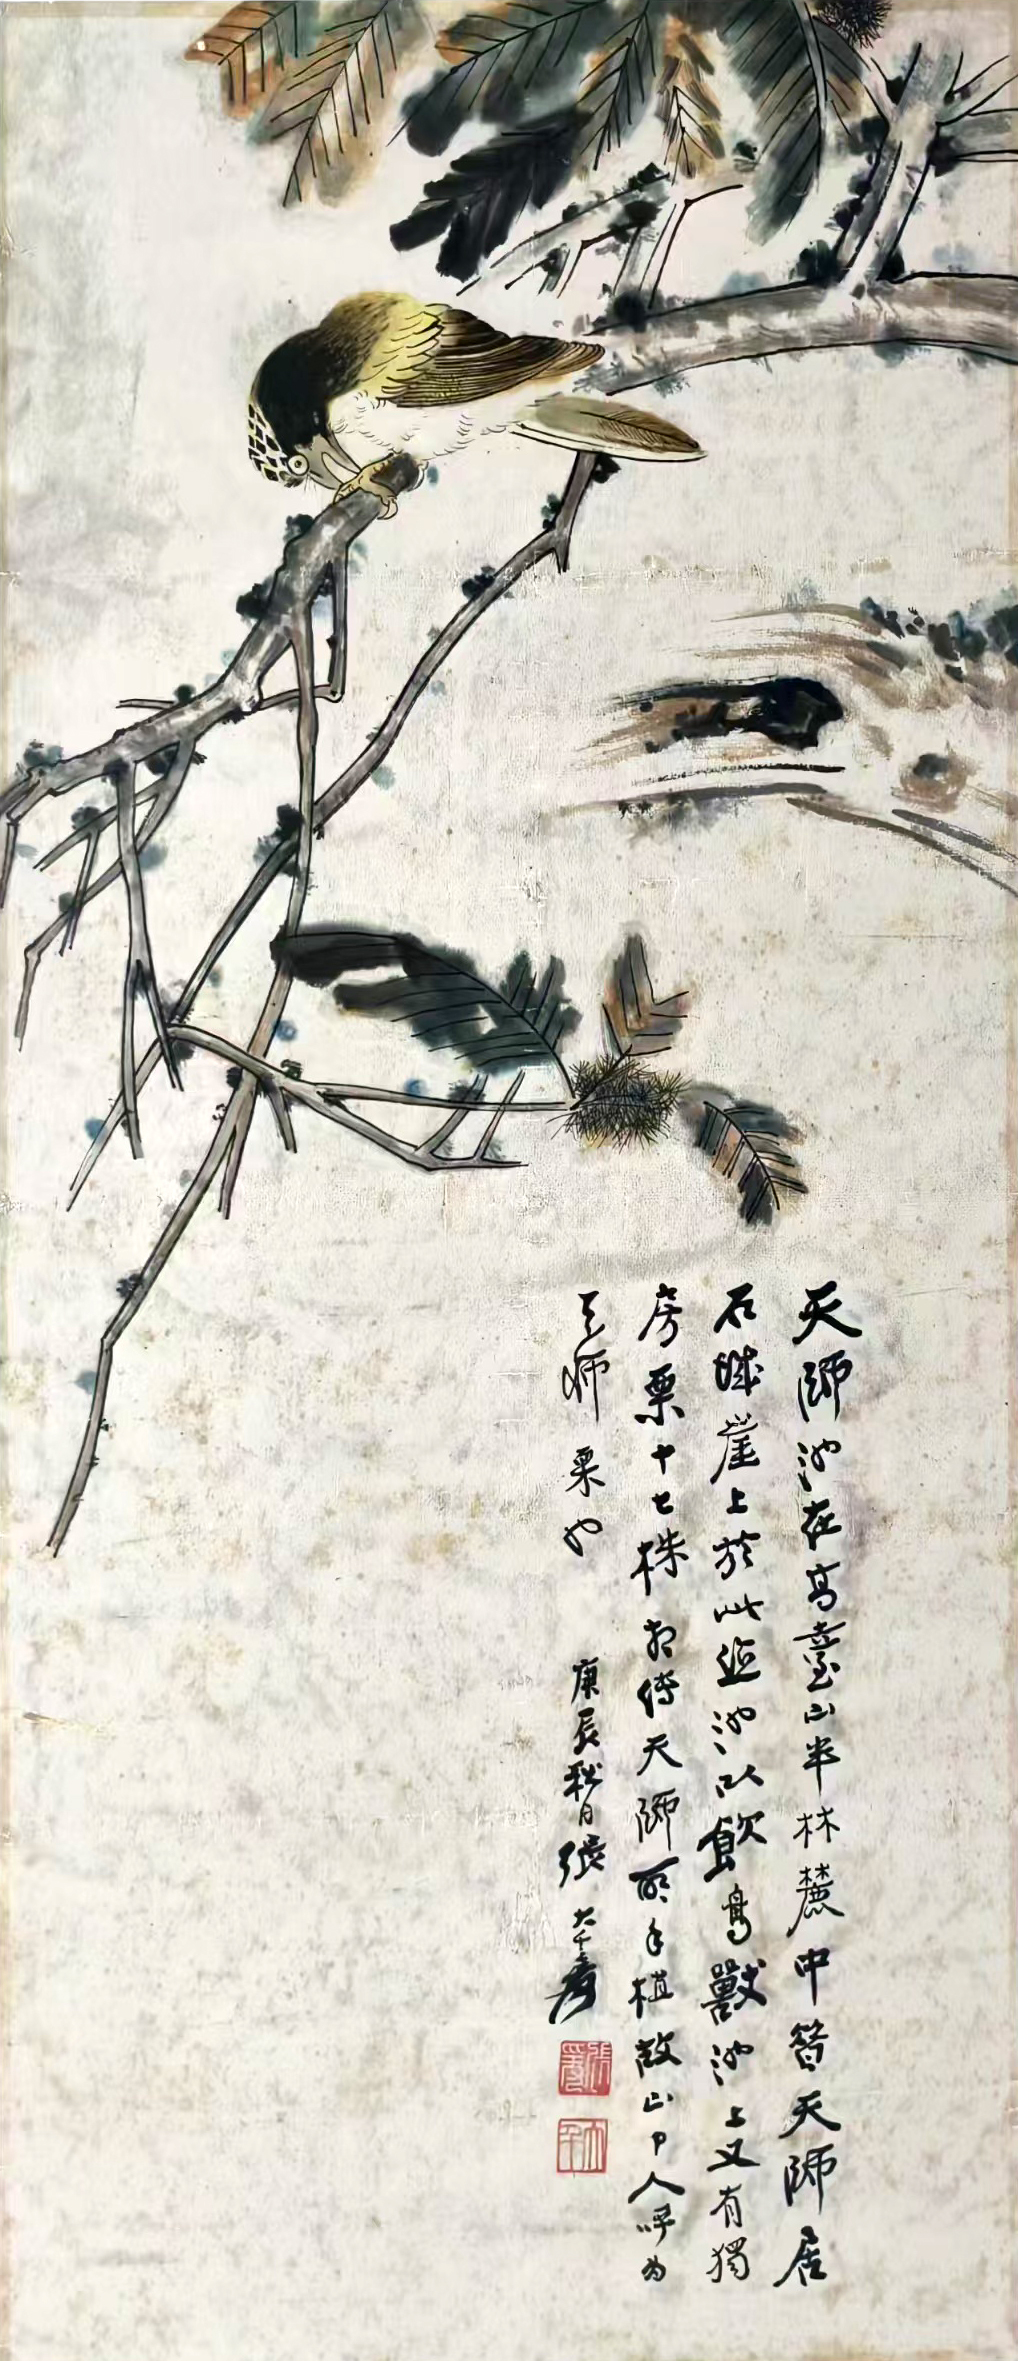 天師池在高臺山半林麓中昝天師居
石城崖上於此造池以飲鳥獸池上又有獨
房栗十七株相傳天師所手植故山中人呼為
天師栗也
庚辰秋日張大千爰
張爰
大千